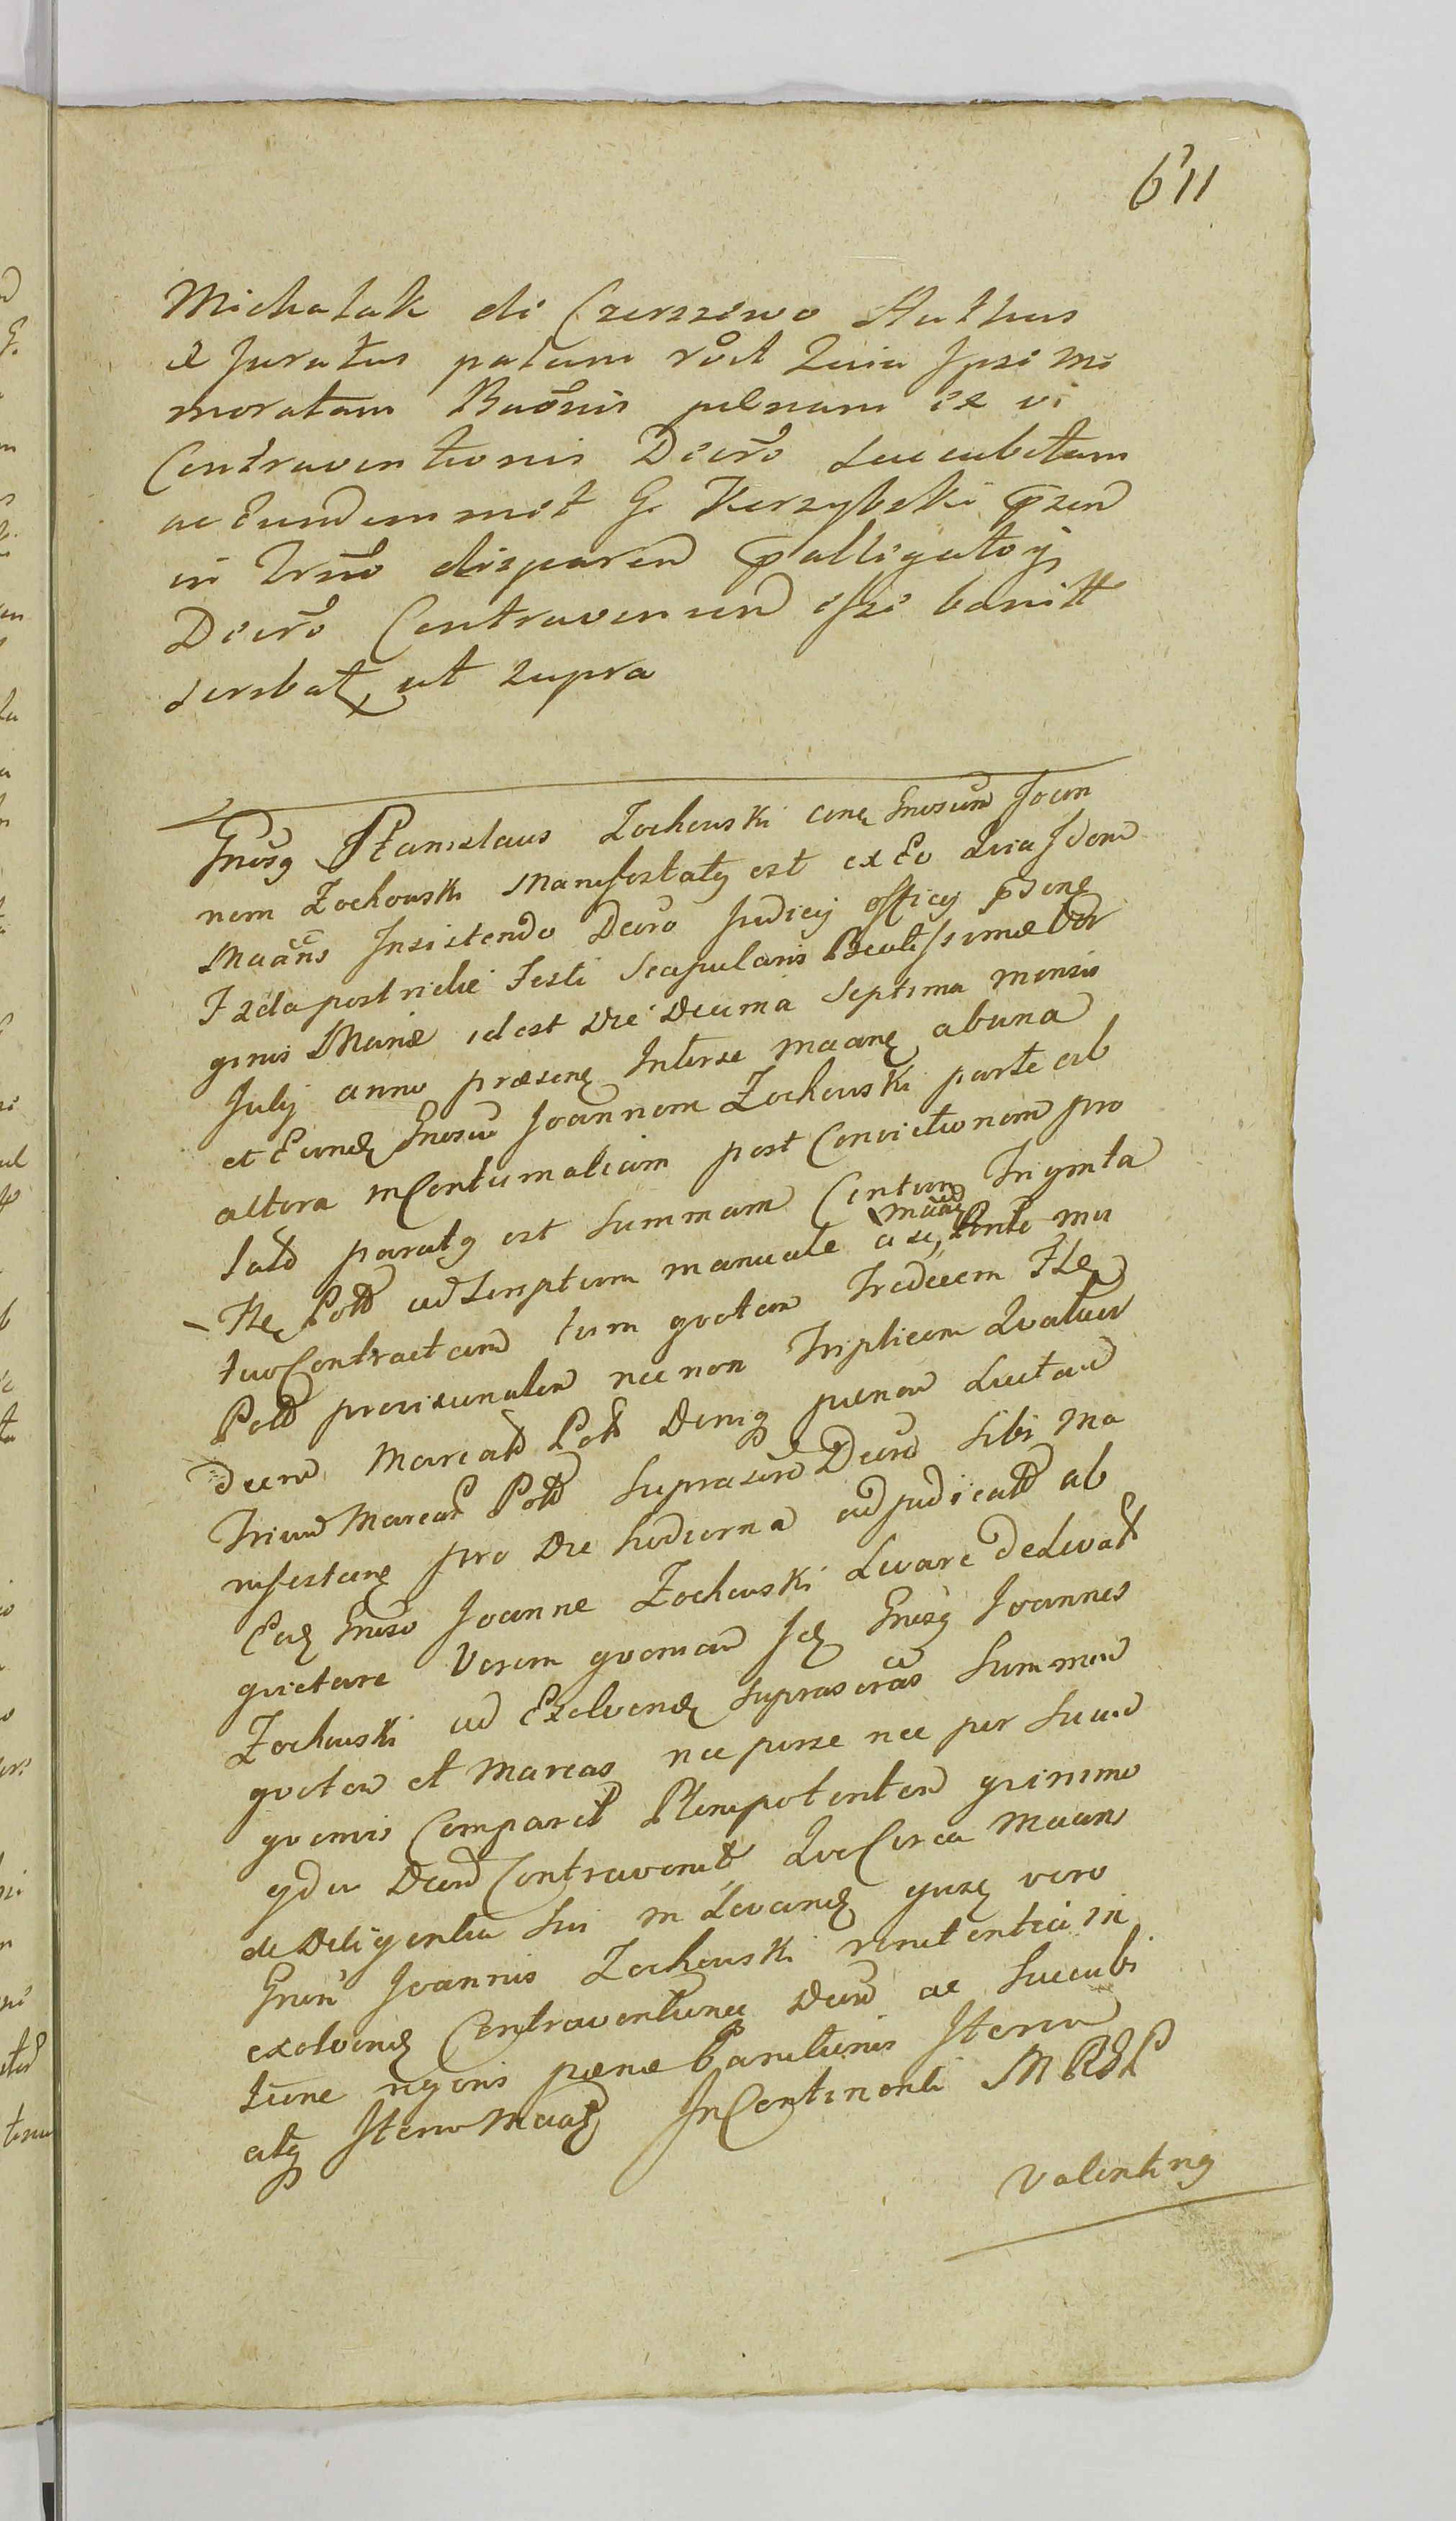 611
Michalak de Czerzewo Authus
et Juratus palam rōct Quia Ipse Me
moratam Baōnis pœnam ex vi
Contraventionis Decrō succubitam
ac Eundemmet G. Karzybski
in disparen palligatoy
Decrō Contravenien esse banitt
scribat ut supra
Gnōsg Stanislaus Zochowski conę Gnosum Joan
nem Zochowski Manifestatg est ex Eo Quia Idem
Maāns Insistendo Decro Judicij officij
Fzda postridie Festi Scapularis Beatissimæ Vir
ginis Mariæ idest Die Decima Septima mensis
July anno præsenę Interse maanę abuna
et Eundę Gnosu Joannem Zochowski parte ab
altera inContumaliam post Convictionem pro
latd paratg est Summam Centum Triginta
Fle Poltd ad Scriptum manuale a se, Ponte mu
maād
tuoContractam tum qvotam Tredecem Fle
Poltd provisionalem nec non Triplicem Qvatuor
Decem Marcatd Polt Deniq pœnam Luctam
Trium Marcar Poltd suprascrō Decrō sibi Ma
nifestanę pro Die hodierna adjudicatd ab
Eodę Gnōso Joanne Zochowski Levare Delevatt
qvietare Verum qvoniam Idę Gnōsg Joannes
Zochowski ad Exolvendę suprascrās Summam
qvotam et Marcas nec per se nec per Suum
qvemvis Comparet Plenipotentem qvinimo
Contravenit QvoCirca Maans
de Diligentia Sui in Levandę qvosę vero
Gnōn Joannis Zochowski renitentia in
exolvendę Contraventionę Decrō ac Succubi
tione rigoris pœnæ banitionis Iterum
atq Iterum Maatę InContinenti M R S P
Valenting